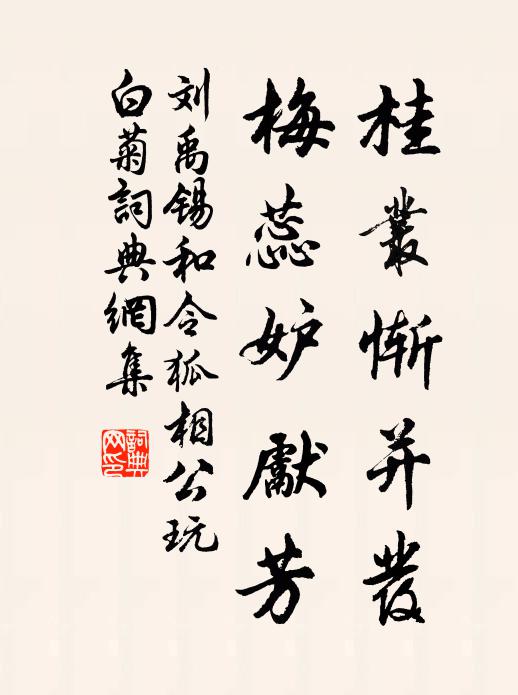 桂叢慚并發
梅蕊妒獻芳
刘禹锡和令狐相公玩
白菊詞典網集
詞典
网印